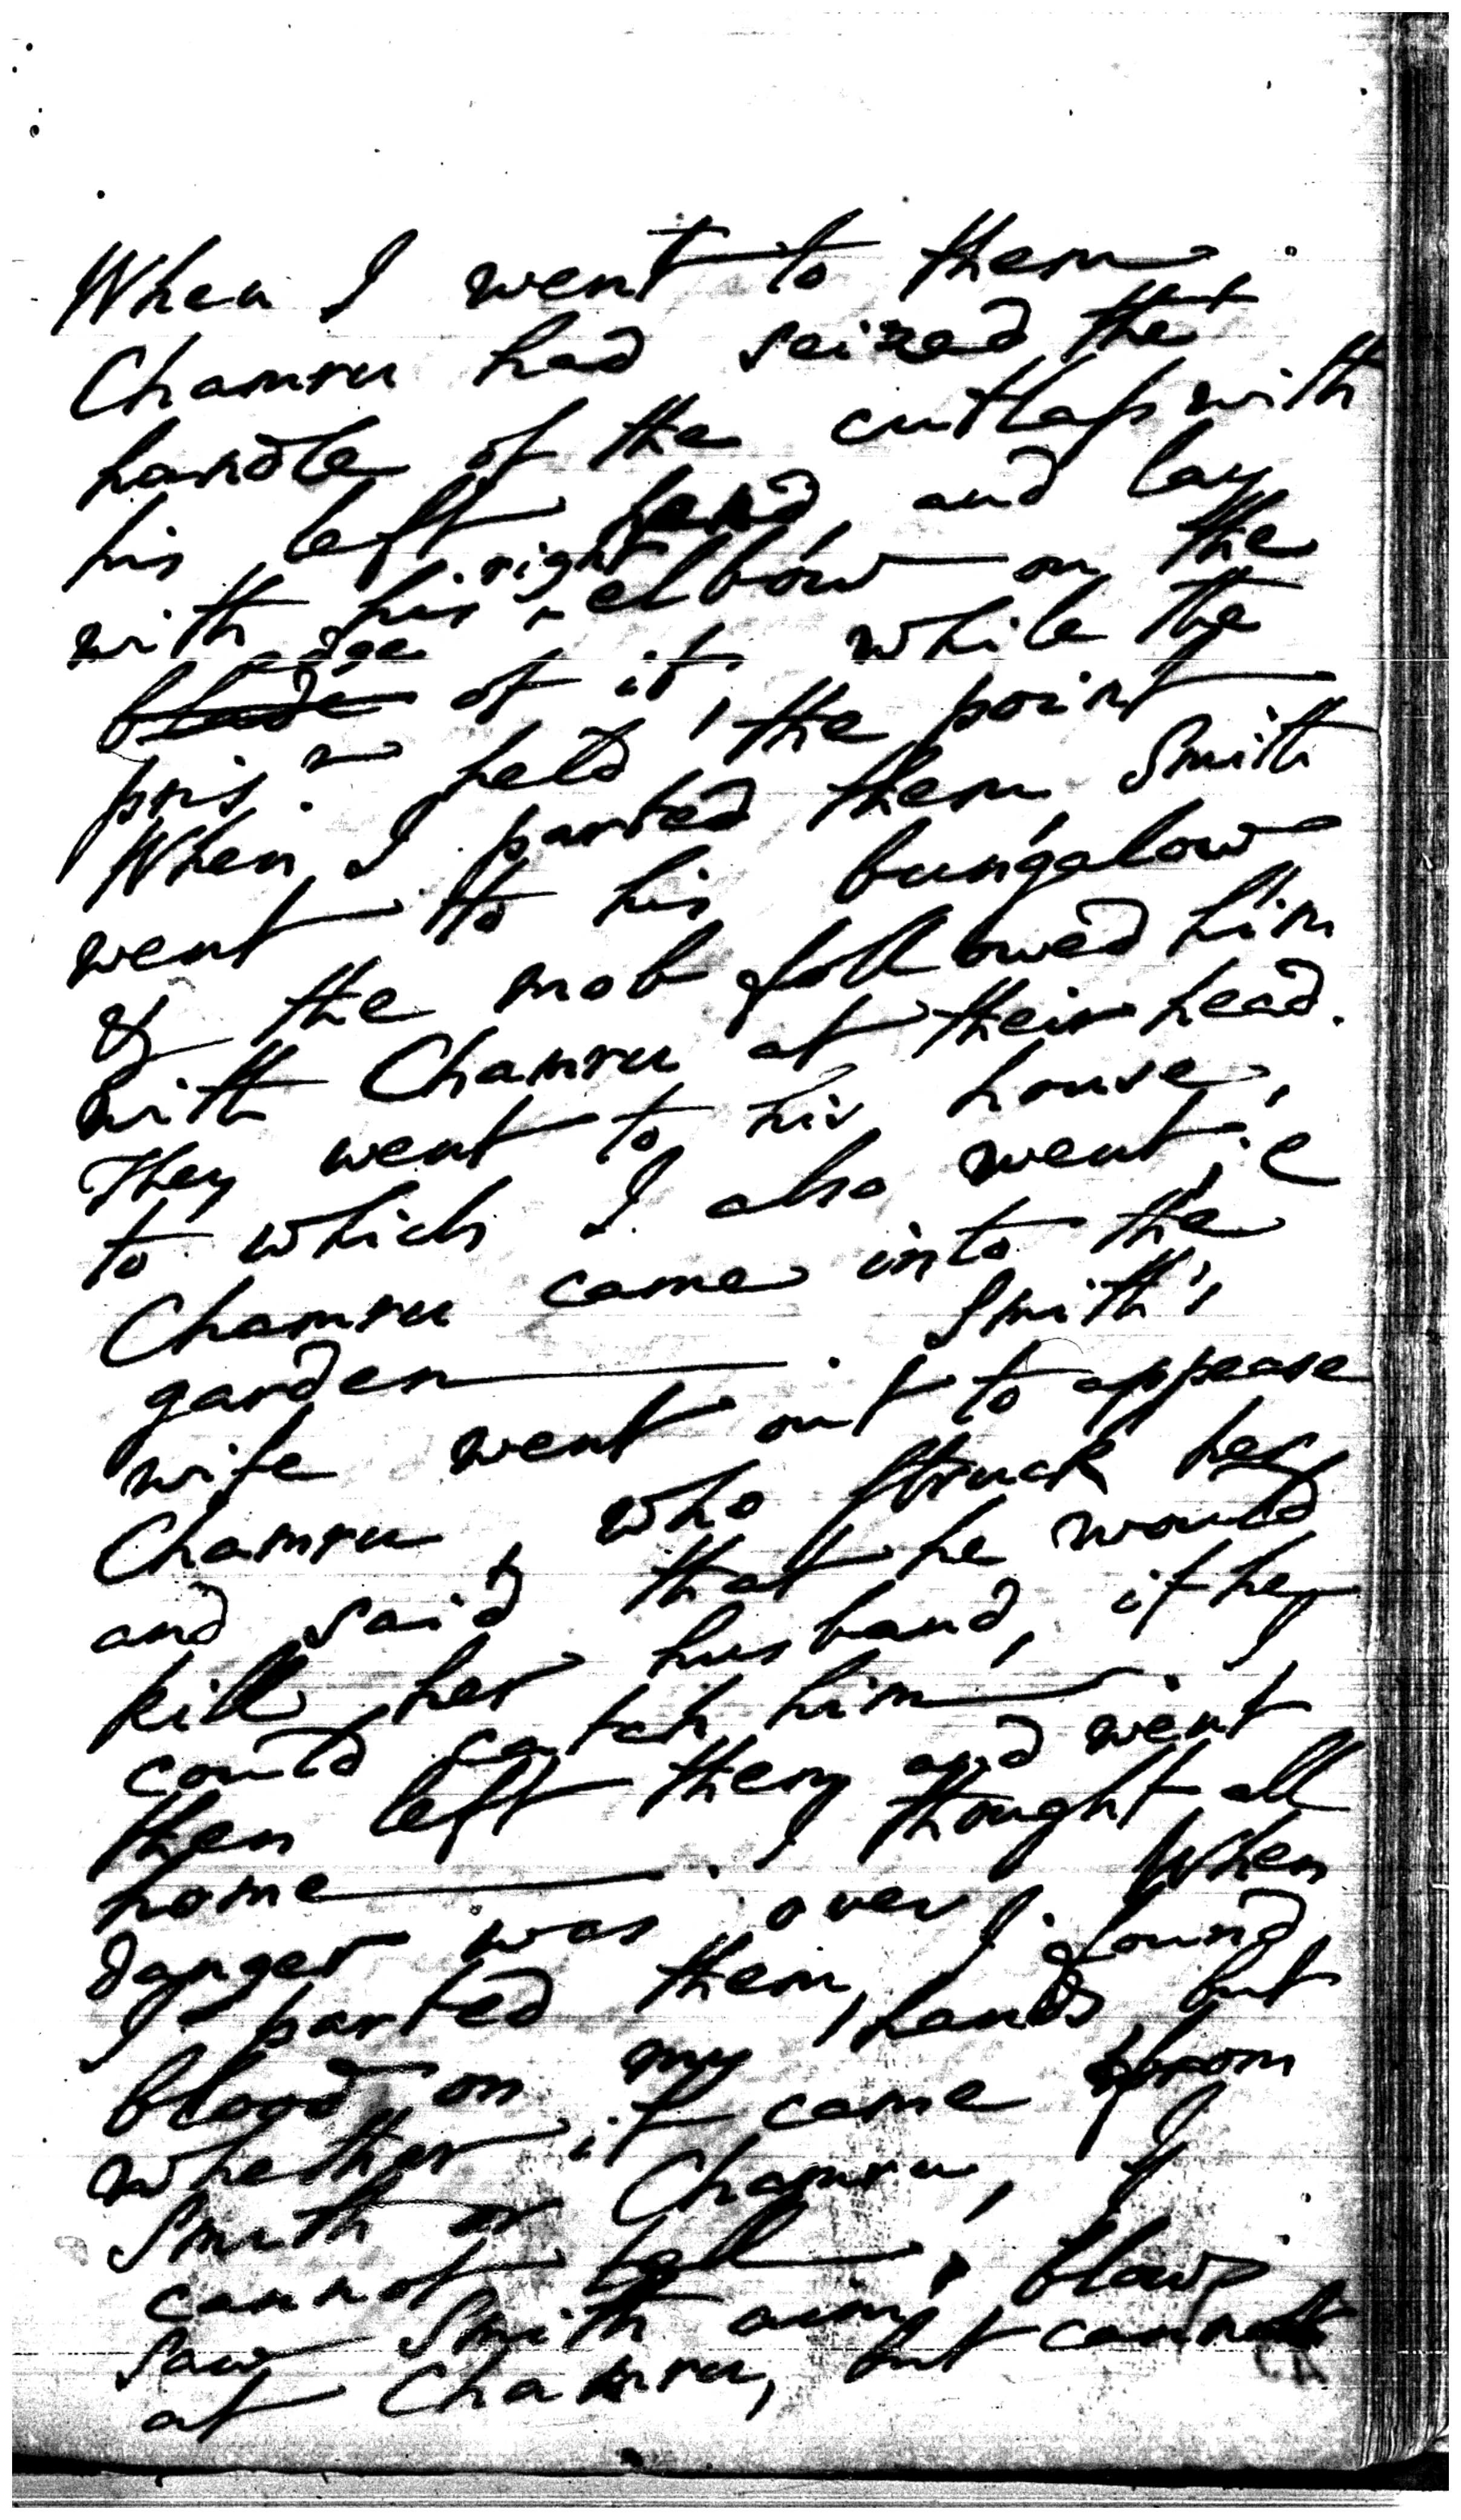 When I went to them,
Chamru had seized the
handle of the cutlass with
his left hand, and lay
with his right elbow on the
edge
blade of it, while the
pris.r held the point
When I parted them, Smith
went to his bungalow
& the mob followed him
with Chamru at their head.
They went to his house,
to which I also went; &
Chamru came into the
garden. Smith's
wife went out to appease
Chamru, who struck her
and said that he would
kill her husband, if he
could catch him. I
then left them and went
home. I thought all
danger was over. When
I parted them, I found
blood on my hands, but
whether it came from
Smith or Chamru, I
cannot tell. I
saw Smith aim blows
at Chamru, but cannot